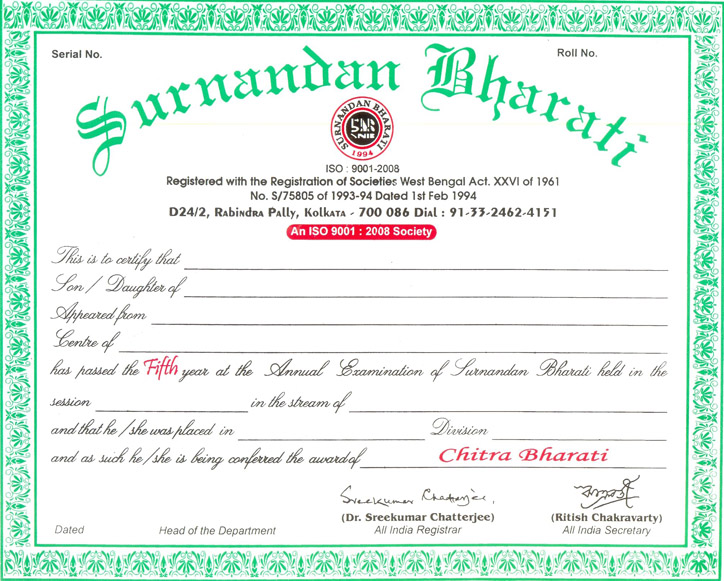 Serial No.
Roll No.
Surnandan Bharati
SURNANDAN BHARATI
1994
ISO : 9001-2008
Registered with the Registration of Societies West Bengal Act. XXVI of 1961
No. S/75805 of 1993-94 Dated 1st Feb 1994
D24/2, Rabindra Pally, Kolkata - 700 086 Dial : 91-33-2462-4151
An ISO 9001 : 2008 Society
This is to certify that
Son / Daughter of
Appeared from
Centre of
has passed the Fifth year at the Annual Examination of Surnandan Bharati held in the
session in the stream of
and that he / she was placed in Division
and as such he / she is being conferred the award of Chitra Bharati
Sreekumar Chatterjee.
(Dr. Sreekumar Chatterjee) (Ritish Chakravarty)
Dated Head of the Department All India Registrar All India Secretary